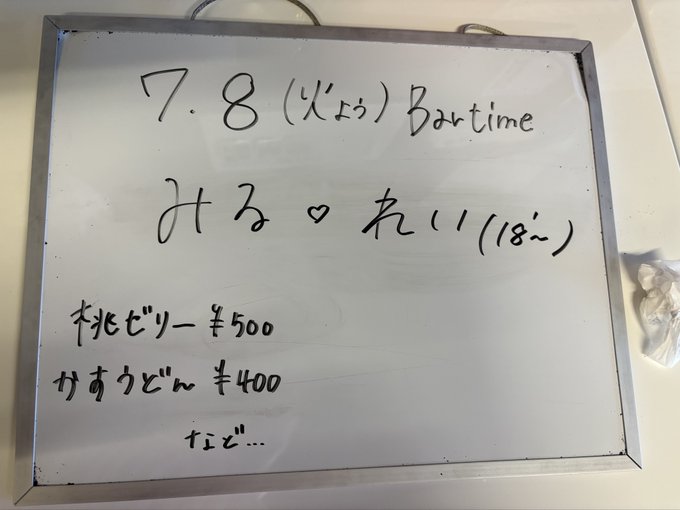 7.8(火よう) Bartime
みる♡れい(18'~)
桃ゼリー ¥500
かすうどん ¥400
など...